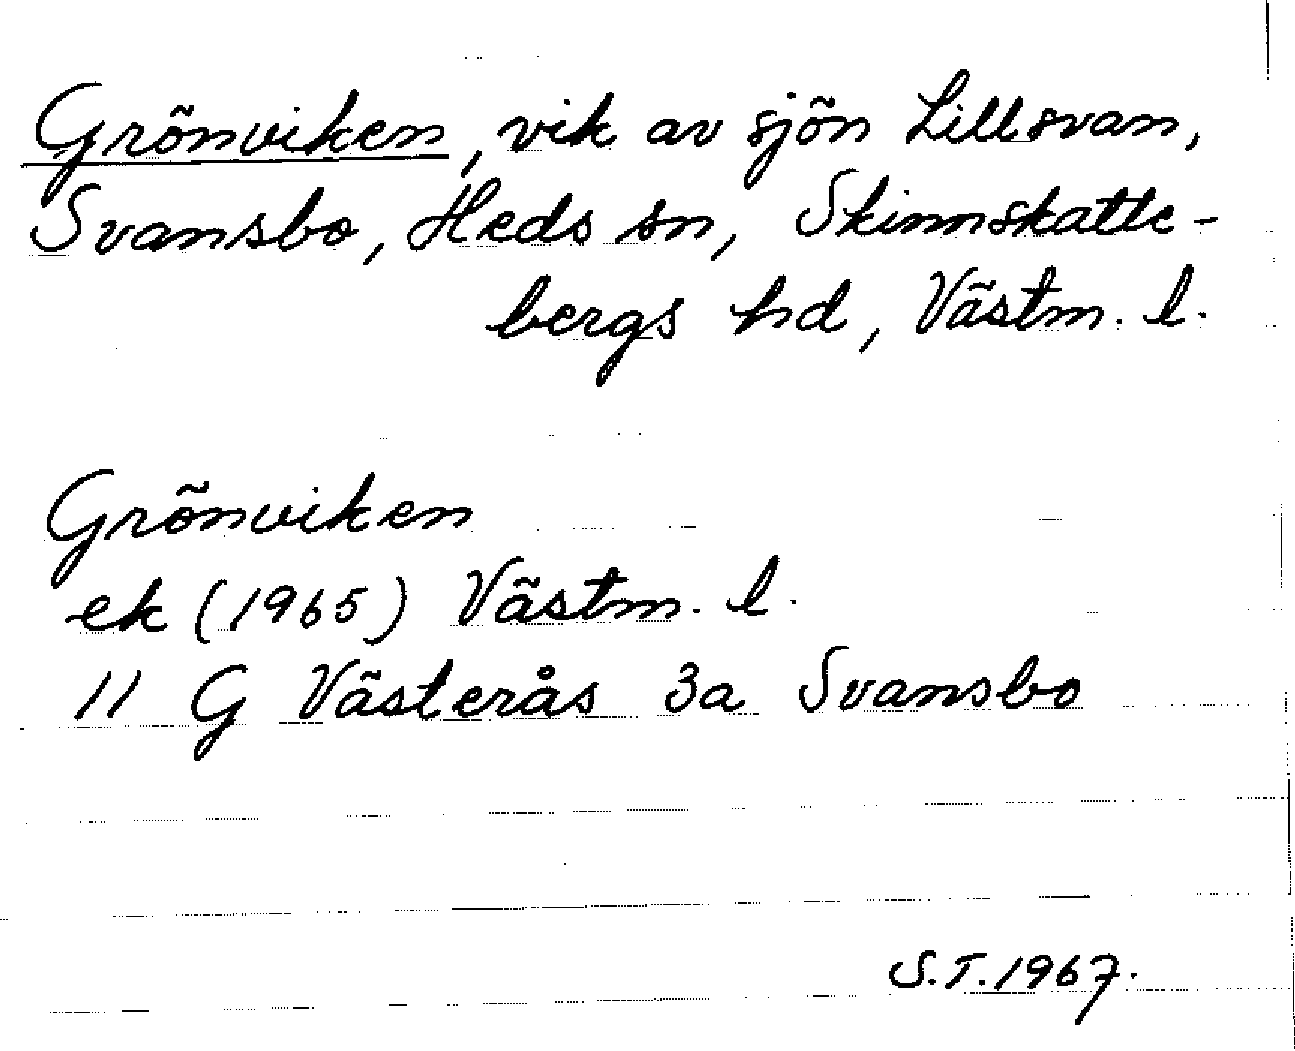 Grönviken, vik av sjön Lillsvan,
Svansbo, Heds sn, Skinnskatte-
bergs hd, Västm. l.
Grönviken
ek (1965) Västm. l.
11 G Västerås 3a Svansbo
S.T. 1967.